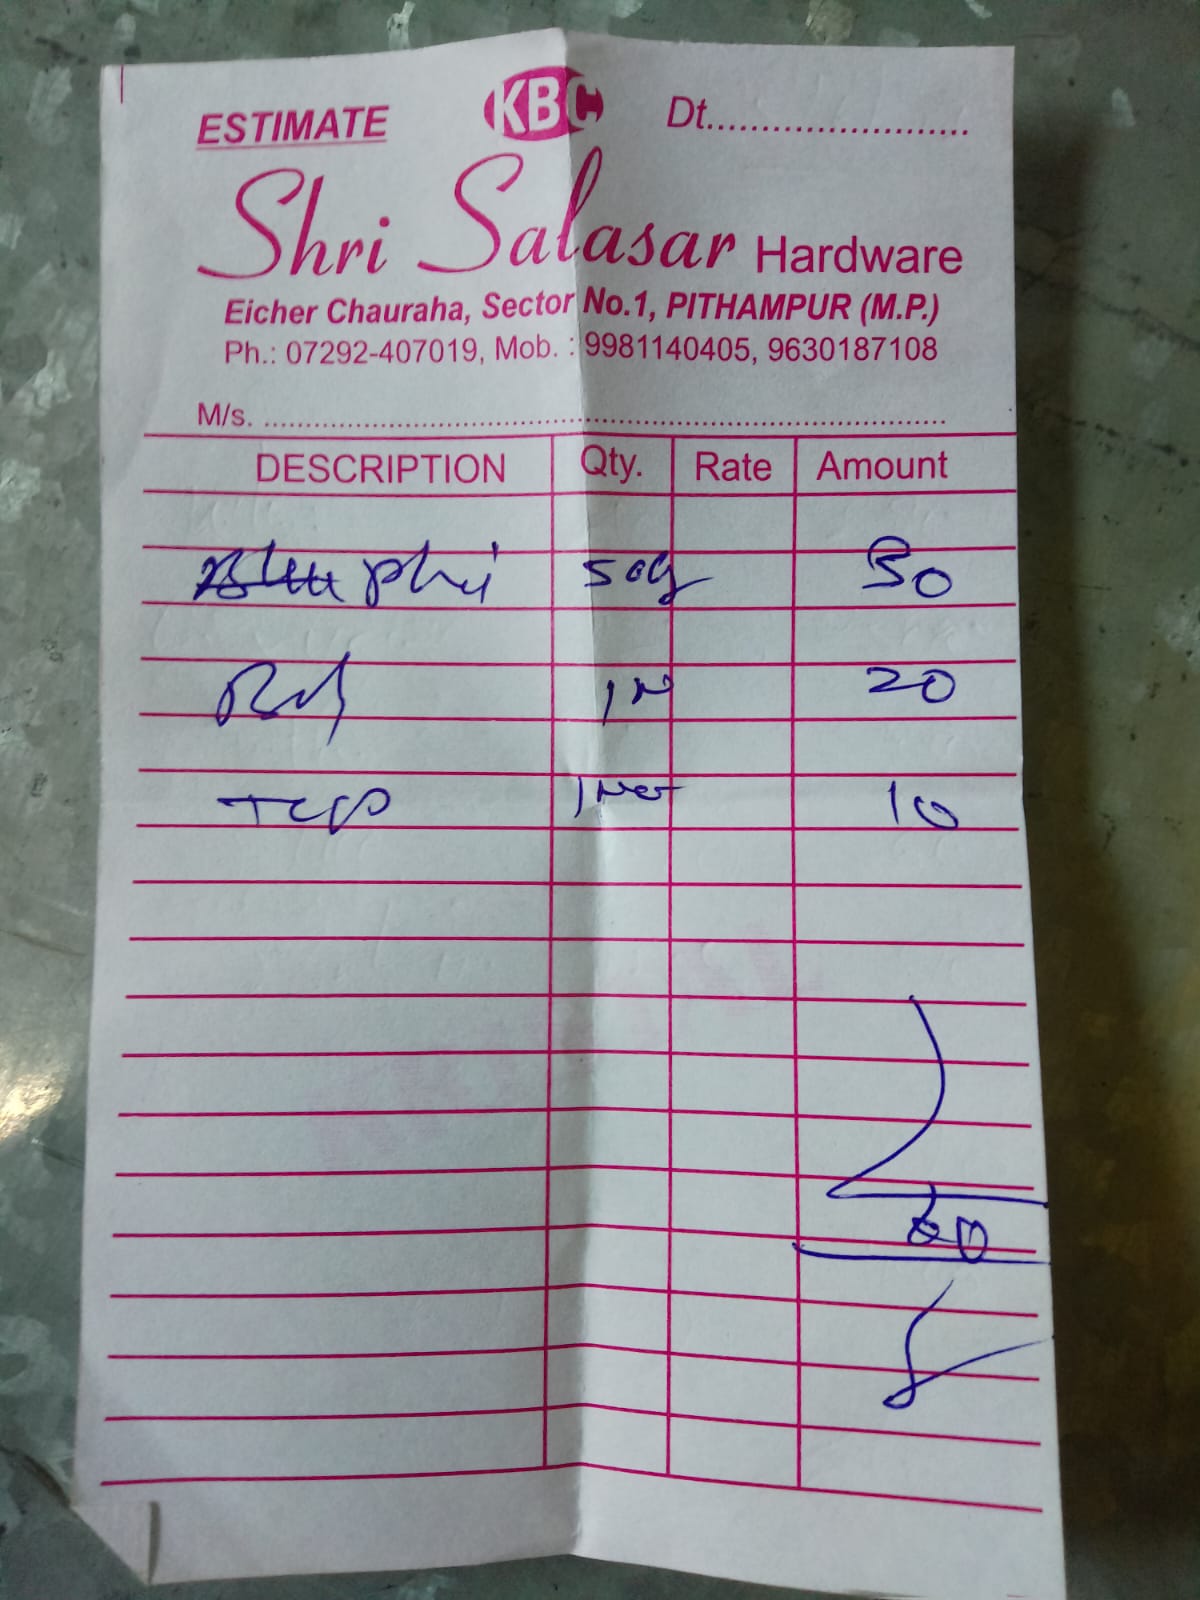 ESTIMATE KBC Dt........................
Shri Salasar Hardware
Eicher Chauraha, Sector No.1, PITHAMPUR (M.P.)
Ph.: 07292-407019, Mob. : 9981140405, 9630187108
M/s. ................................................................................
DESCRIPTION Qty. Rate Amount
50g
20
1 10